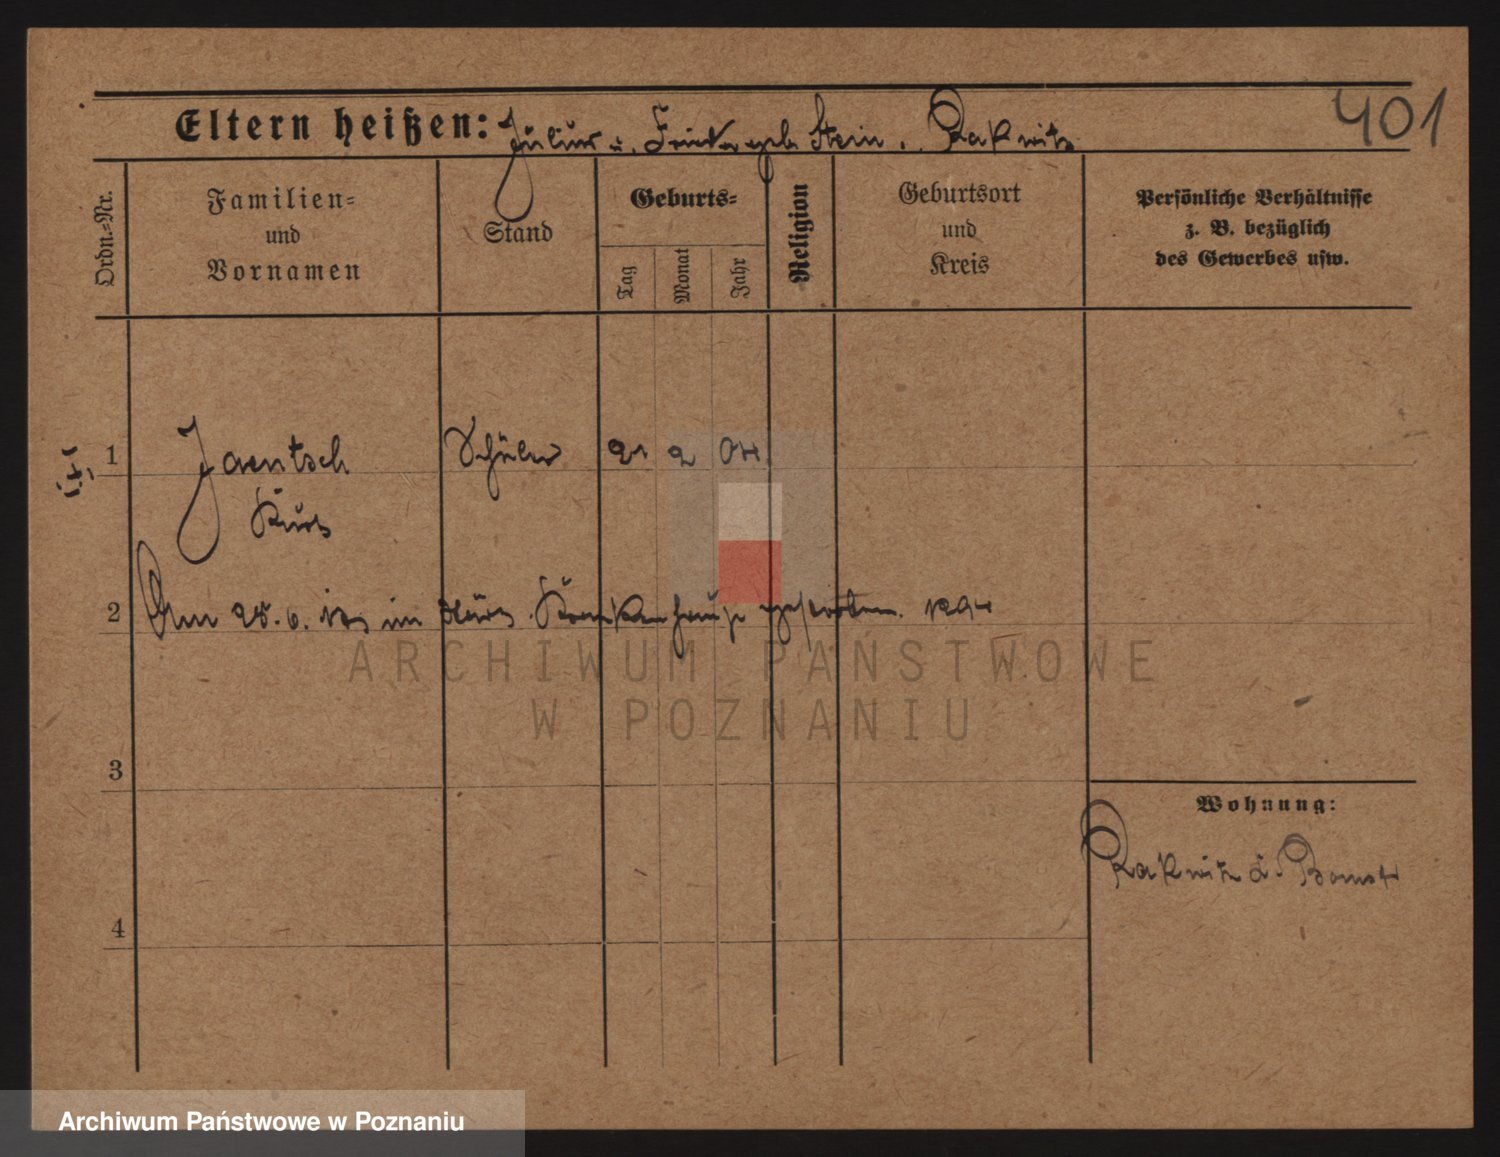 401
Eltern heißen: Julius u. Frieda geb. Stein. Rakwitz
Ordn.-Nr.
Familien-
und
Vornamen
Stand
Geburts-
Tag
Monat
Jahr
Religion
Geburtsort
und
Kreis
Persönliche Verhältnisse
z. B. bezüglich
des Gewerbes usw.
1 Jaentsch Schüler 21 2 04
Kurt
2 Am 28. 6. im Krankenhause gestorben.
ARCHIWUM PAŃSTWOWE
W POZNANIU
3
Wohnung:
Rakwitz Bomst
4
Archiwum Państwowe w Poznaniu